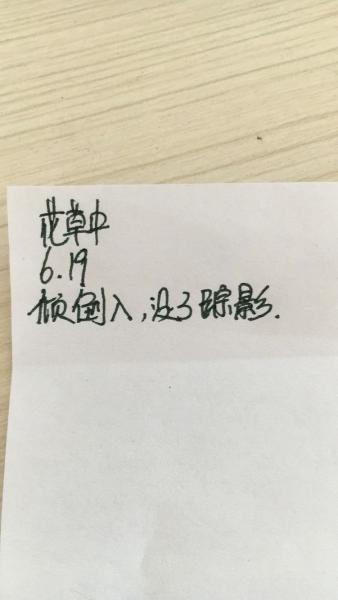 花草中
6.19
倾倒入,没了踪影.